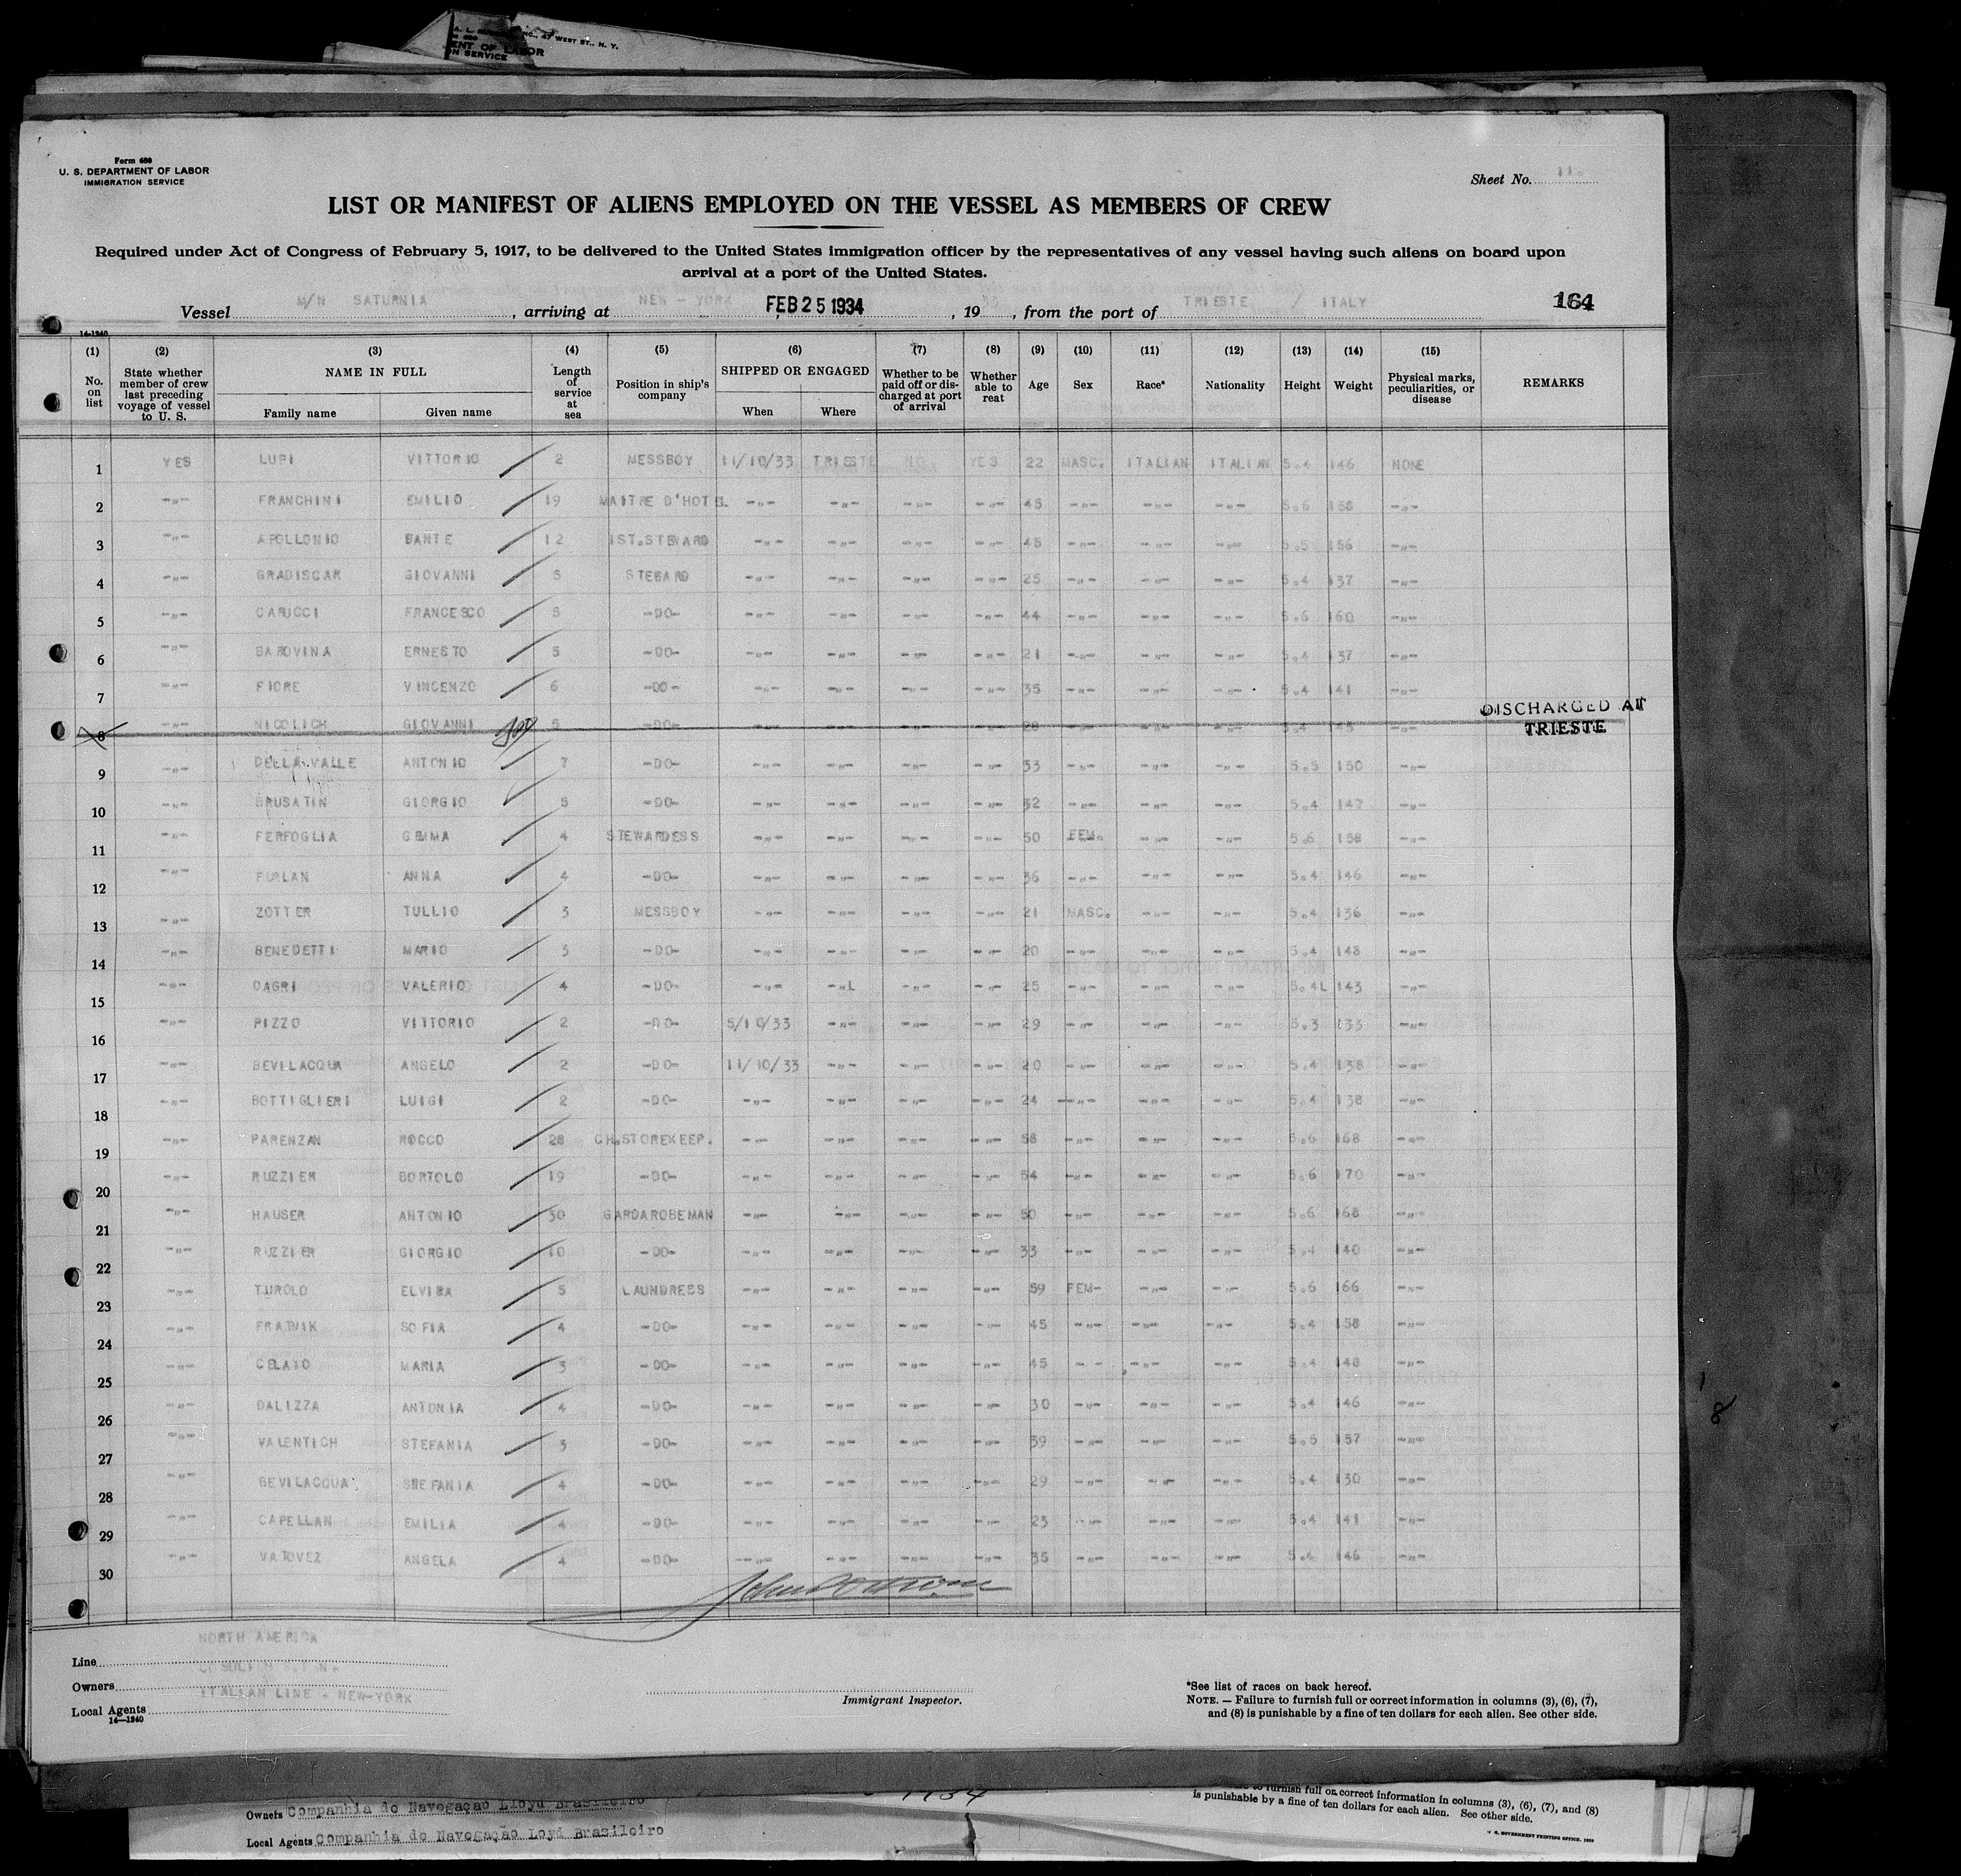 A. L. INC., 47 WEST ST., N. Y.
ENT OF LABOR
ON SERVICE
Form 680
U. S. DEPARTMENT OF LABOR
IMMIGRATION SERVICE
Sheet No. 11.
LIST OR MANIFEST OF ALIENS EMPLOYED ON THE VESSEL AS MEMBERS OF CREW
Required under Act of Congress of February 5, 1917, to be delivered to the United States immigration officer by the representatives of any vessel having such aliens on board upon
arrival at a port of the United States.
Vessel M/N SATURNIA, arriving at NEW-YORK FEB 25 1934, 19 33, from the port of TRIESTE / ITALY 164
14-1240
(1) (2) (3) (4) (5) (6) (7) (8) (9) (10) (11) (12) (13) (14) (15)
No. on list | State whether member of crew last preceding voyage of vessel to U. S. | NAME IN FULL | Length of service at sea | Position in ship's company | SHIPPED OR ENGAGED | Whether to be paid off or discharged at port of arrival | Whether able to reat | Age | Sex | Race* | Nationality | Height | Weight | Physical marks, peculiarities, or disease | REMARKS
Family name | Given name | When | Where
1 YES LUPI VITTORIO 2 MESSBOY 11/10/33 TRIESTE NO YES 22 MASC. ITALIAN ITALIAN 5.4 146 NONE
2 -"- FRANCHINI EMILIO 19 MAITRE D'HOTEL -"- -"- -"- -"- 45 -"- -"- -"- 5.6 158 -"-
3 -"- APOLLONIO DANTE 12 1ST.STEWARD -"- -"- -"- -"- 45 -"- -"- -"- 5.5 156 -"-
4 -"- GRADISCAR GIOVANNI 5 STEWARD -"- -"- -"- -"- 25 -"- -"- -"- 5.4 137 -"-
5 -"- CARUCCI FRANCESCO 5 -DO- -"- -"- -"- -"- 44 -"- -"- -"- 5.6 160 -"-
6 -"- BAROVINA ERNESTO 5 -DO- -"- -"- -"- -"- 21 -"- -"- -"- 5.4 137 -"-
7 -"- FIORE VINCENZO 6 -DO- -"- -"- -"- -"- 35 -"- -"- -"- 5.4 141 -"-
8 -"- NICOLICH GIOVANNI 5 -DO- -"- -"- -"- -"- 28 -"- -"- -"- 5.4 -"- DISCHARGED AT TRIESTE
9 -"- DELLA VALLE ANTONIO 7 -DO- -"- -"- -"- -"- 33 -"- -"- -"- 5.5 150 -"-
10 -"- BRUSATIN GIORGIO 5 -DO- -"- -"- -"- -"- 32 -"- -"- -"- 5.4 147 -"-
11 -"- FERFOGLIA GEMMA 4 STEWARDESS -"- -"- -"- -"- 50 FEM. -"- -"- 5.6 158 -"-
12 -"- FURLAN ANNA 4 -DO- -"- -"- -"- -"- 36 -"- -"- -"- 5.4 146 -"-
13 -"- ZOTTER TULLIO 3 MESSBOY -"- -"- -"- -"- 21 MASC. -"- -"- 5.4 136 -"-
14 -"- BENEDETTI MARIO 3 -DO- -"- -"- -"- -"- 20 -"- -"- -"- 5.4 148 -"-
15 -"- DAGRI VALERIO 4 -DO- -"- -"L -"- -"- 25 -"- -"- -"- 5.4L 143 -"-
16 -"- PIZZO VITTORIO 2 -DO- 5/10/33 -"- -"- -"- 29 -"- -"- -"- 5.3 133 -"-
17 -"- BEVILACQUA ANGELO 2 -DO- 11/10/33 -"- -"- -"- 20 -"- -"- -"- 5.4 138 -"-
18 -"- BOTTIGLIERI LUIGI 2 -DO- -"- -"- -"- -"- 24 -"- -"- -"- 5.4 138 -"-
19 -"- PARENZAN ROCCO 28 CH.STOREKEEP. -"- -"- -"- -"- 58 -"- -"- -"- 5.6 168 -"-
20 -"- RUZZIER BORTOLO 19 -DO- -"- -"- -"- -"- 54 -"- -"- -"- 5.6 170 -"-
21 -"- HAUSER ANTONIO 30 GARDAROBEMAN -"- -"- -"- -"- 50 -"- -"- -"- 5.6 168 -"-
22 -"- RUZZIER GIORGIO 10 -DO- -"- -"- -"- -"- 33 -"- -"- -"- 5.4 140 -"-
23 -"- TUROLO ELVIRA 5 LAUNDRESS -"- -"- -"- -"- 59 FEM- -"- -"- 5.6 166 -"-
24 -"- FRATNIK SOFIA 4 -DO- -"- -"- -"- -"- 45 -"- -"- -"- 5.4 158 -"-
25 -"- CELATO MARIA 3 -DO- -"- -"- -"- -"- 45 - - -"- -"- 5.4 148 -"-
26 -"- DALIZZA ANTONIA 4 -DO- -"- -"- -"- -"- 30 -"- -"- -"- 5.4 146 -"-
27 -"- VALENTICH STEFANIA 3 -DO- -"- -"- -"- -"- 39 -"- -"- -"- 5.5 157 -"-
28 -"- BEVILACQUA STEFANIA 4 -DO- -"- -"- -"- -"- 29 -"- -"- -"- 5.4 130 -"-
29 -"- CAPELLAN EMILIA 4 -DO- -"- -"- -"- -"- 23 -"- -"- -"- 5.4 141 -"-
30 -"- VATOVEZ ANGELA 4 -DO- -"- -"- -"- -"- 35 -"- -"- -"- 5.4 146 -"-
Line NORTH AMERICA
Owners COSULICH
Local Agents ITALIAN LINE - NEW-YORK
14-1240
Immigrant Inspector.
*See list of races on back hereof.
NOTE. — Failure to furnish full or correct information in columns (3), (6), (7),
and (8) is punishable by a fine of ten dollars for each alien. See other side.
1
8
1934
Owners Companhia de Navegação Lloyd Brasileiro
Local Agents Companhia de Navogação Loyd Brasileiro
to furnish full or correct information in columns (3), (6), (7), and (8)
is punishable by a fine of ten dollars for each alien. See other side.
U. S. GOVERNMENT PRINTING OFFICE. 1930